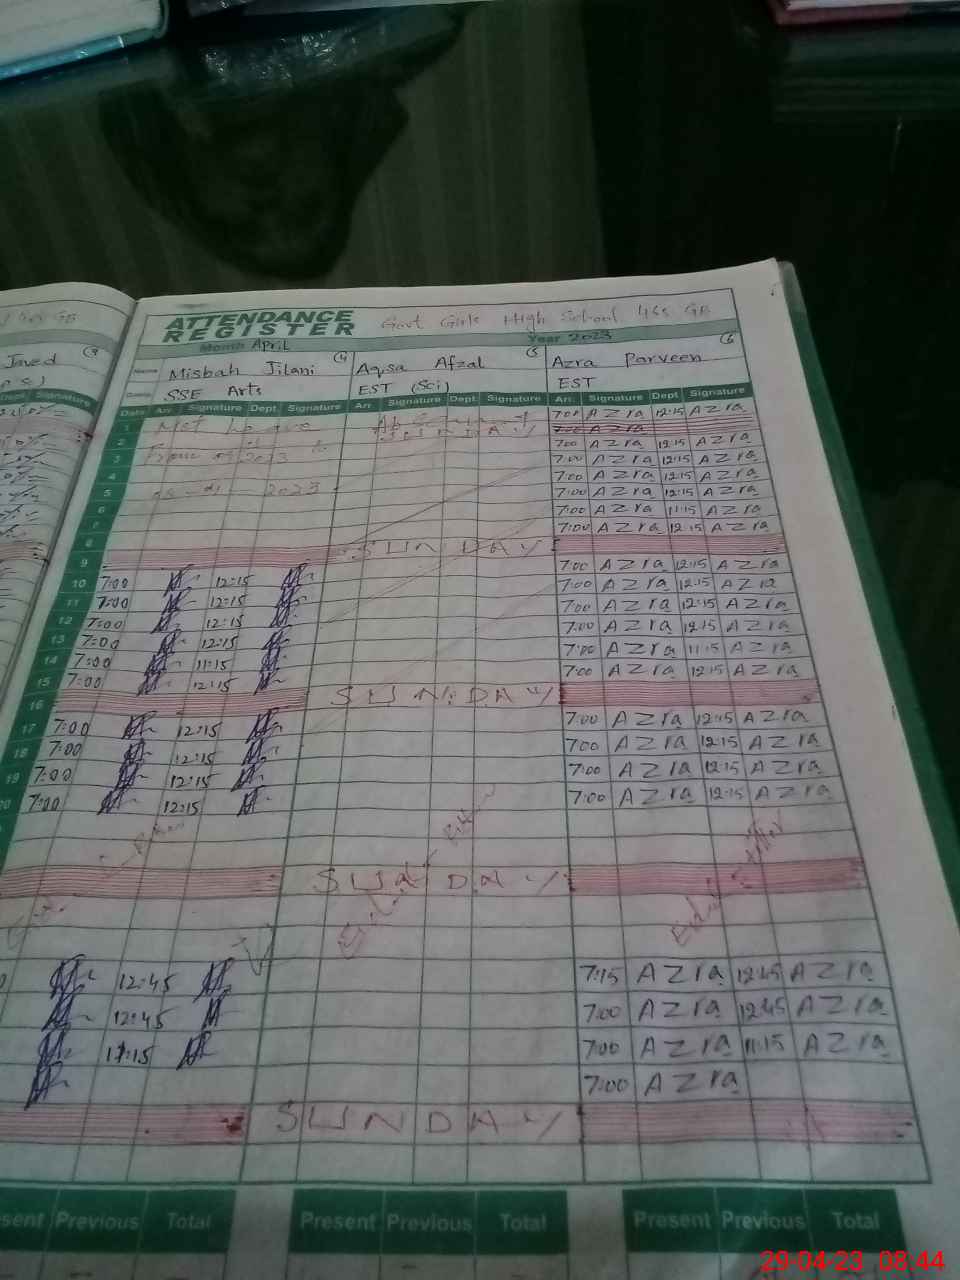 ATTENDANCE REGISTER Govt Girls High School 465 GB
Month April Year 2023
Javed (3) Name Misbah Jilani (4) Aqsa Afzal (5) Azra Parveen (6)
SSE Arts EST (Sci) EST
Dept. Signature Date Arr. Signature Dept. Signature Arr. Signature Dept. Signature Arr. Signature Dept. Signature
1 7:00 Azra 12:15 Azra
2 SUNDAY 7:00 Azra
3 2023 to 7:00 Azra 12:15 Azra
4 7:00 Azra 12:15 Azra
5 2023 7:00 Azra 12:15 Azra
6 7:00 Azra 12:15 Azra
7 7:00 Azra 11:15 Azra
8 7:00 Azra 12:15 Azra
9 SUNDAY
10 7:00 12:15 7:00 Azra 12:15 Azra
11 7:00 12:15 7:00 Azra 12:15 Azra
12 7:00 12:15 7:00 Azra 12:15 Azra
13 7:00 12:15 7:00 Azra 12:15 Azra
14 7:00 11:15 7:00 Azra 11:15 Azra
15 7:00 12:15 7:00 Azra 12:15 Azra
16 SUNDAY
17 7:00 12:15 7:00 Azra 12:15 Azra
18 7:00 12:15 7:00 Azra 12:15 Azra
19 7:00 12:15 7:00 Azra 12:15 Azra
7:00 12:15 7:00 Azra 12:15 Azra
SUNDAY
12:45 7:15 Azra 12:45 Azra
12:45 7:00 Azra 12:45 Azra
11:15 7:00 Azra 11:15 Azra
7:00 Azra
SUNDAY
Previous Total Present Previous Total Present Previous Total
29-04-23 08:44